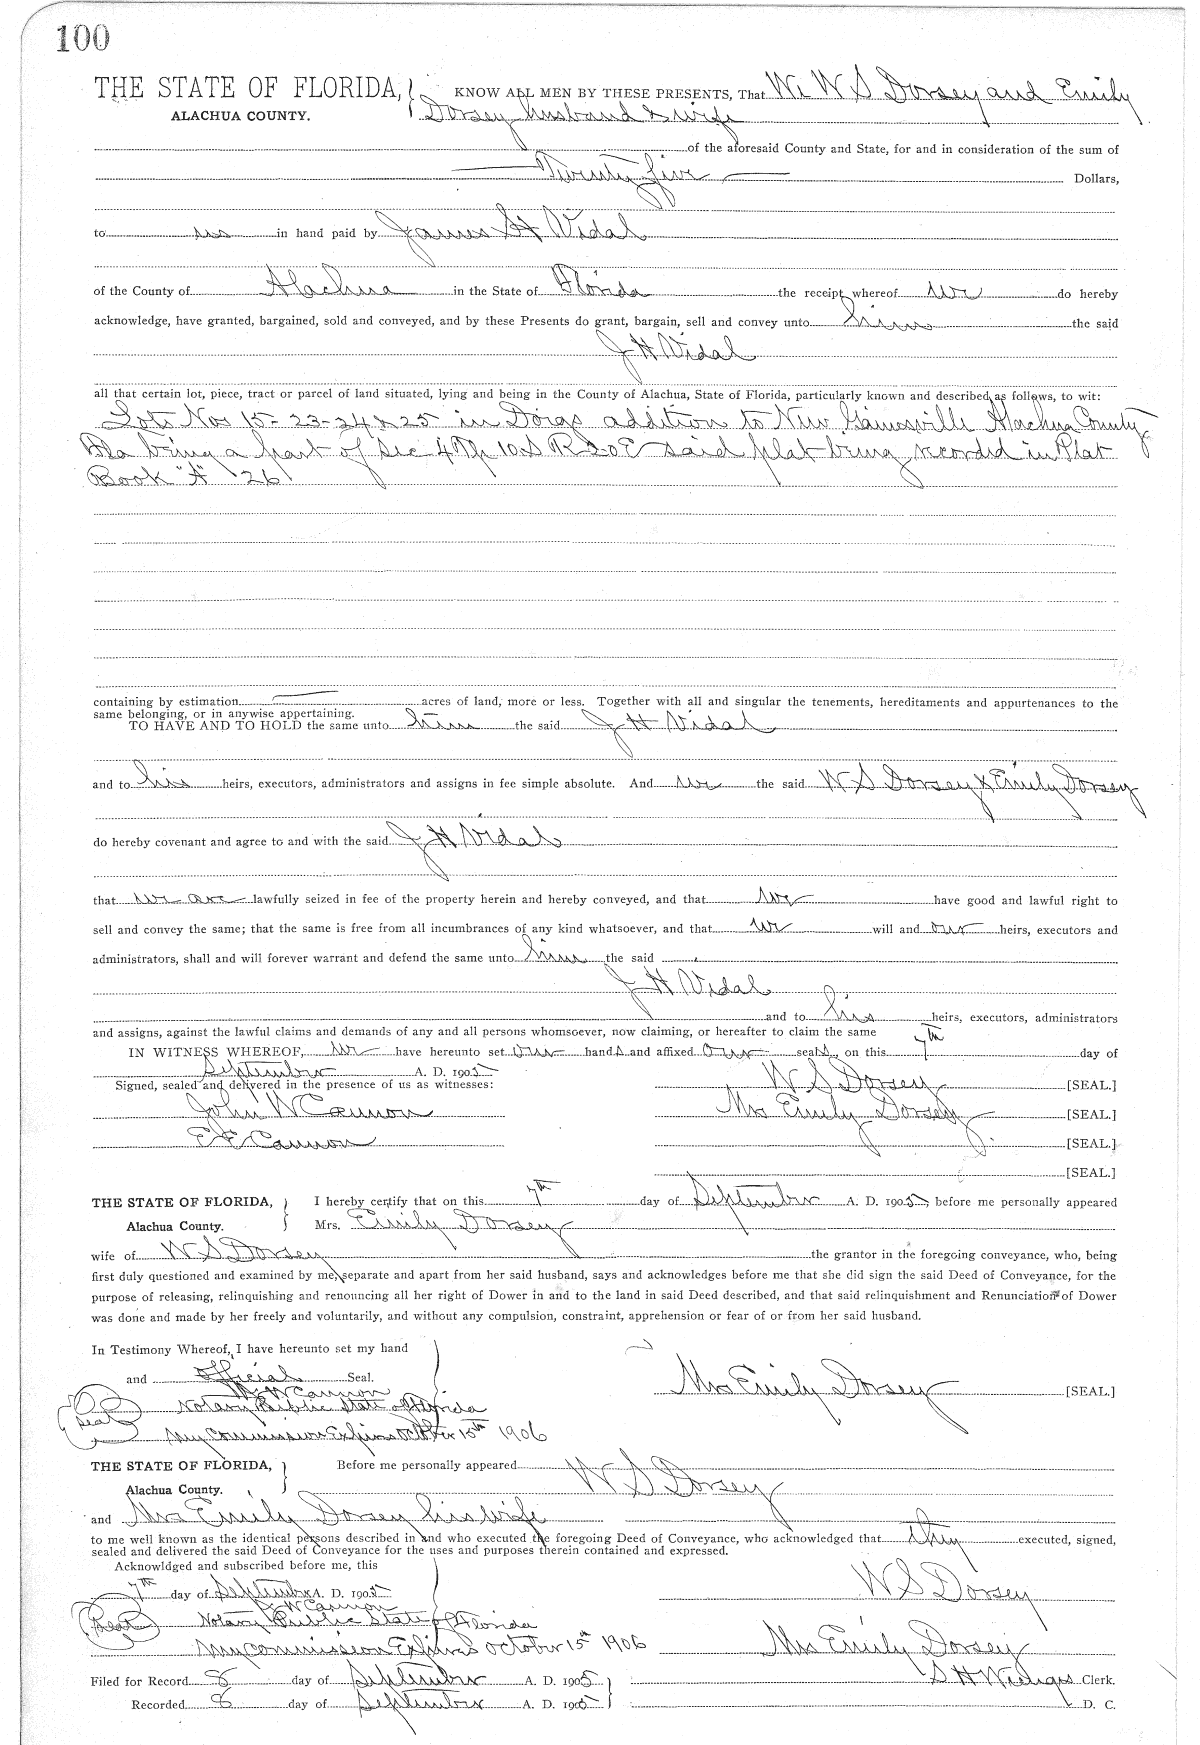 100
THE STATE OF FLORIDA, KNOW ALL MEN BY THESE PRESENTS, That We W S Dorsey and Emily
ALACHUA COUNTY. Dorsey husband & wife
of the aforesaid County and State, for and in consideration of the sum of
Twenty five Dollars,
to us in hand paid by James H Vidal
of the County of Alachua in the State of Florida the receipt whereof we do hereby
acknowledge, have granted, bargained, sold and conveyed, and by these Presents do grant, bargain, sell and convey unto him the said
J H Vidal
all that certain lot, piece, tract or parcel of land situated, lying and being in the County of Alachua, State of Florida, particularly known and described as follows, to wit:
Lots Nos 15-23-24 & 25 in Doigs addition to New Gainesville Alachua County
Fla being a part of Sec 4 Tp 10 S R 20 E said plat being recorded in Plat
Book "A" 26
containing by estimation acres of land, more or less. Together with all and singular the tenements, hereditaments and appurtenances to the
same belonging, or in anywise appertaining.
TO HAVE AND TO HOLD the same unto him the said J H Vidal
and to his heirs, executors, administrators and assigns in fee simple absolute. And we the said W S Dorsey & Emily Dorsey
do hereby covenant and agree to and with the said J H Vidal
that we are lawfully seized in fee of the property herein and hereby conveyed, and that we have good and lawful right to
sell and convey the same; that the same is free from all incumbrances of any kind whatsoever, and that we will and our heirs, executors and
administrators, shall and will forever warrant and defend the same unto him the said
J H Vidal
and to his heirs, executors, administrators
and assigns, against the lawful claims and demands of any and all persons whomsoever, now claiming, or hereafter to claim the same
IN WITNESS WHEREOF, we have hereunto set our hands and affixed our seals, on this 7th day of
September A. D. 1905
Signed, sealed and delivered in the presence of us as witnesses: W S Dorsey [SEAL.]
John W Cannon Mrs Emily Dorsey [SEAL.]
E E Cannon [SEAL.]
[SEAL.]
THE STATE OF FLORIDA, I hereby certify that on this 7th day of September A. D. 1905, before me personally appeared
Alachua County. Mrs. Emily Dorsey
wife of W S Dorsey the grantor in the foregoing conveyance, who, being
first duly questioned and examined by me, separate and apart from her said husband, says and acknowledges before me that she did sign the said Deed of Conveyance, for the
purpose of releasing, relinquishing and renouncing all her right of Dower in and to the land in said Deed described, and that said relinquishment and Renunciation of Dower
was done and made by her freely and voluntarily, and without any compulsion, constraint, apprehension or fear of or from her said husband.
In Testimony Whereof, I have hereunto set my hand
and official Seal. Mrs Emily Dorsey [SEAL.]
W Cannon
Seal Notary Public State of Florida
My Commission Expires October 15th 1906
THE STATE OF FLORIDA, Before me personally appeared W S Dorsey
Alachua County.
and Mrs Emily Dorsey his wife
to me well known as the identical persons described in and who executed the foregoing Deed of Conveyance, who acknowledged that they executed, signed,
sealed and delivered the said Deed of Conveyance for the uses and purposes therein contained and expressed.
Acknowldged and subscribed before me, this
7th day of September A. D. 1905 W S Dorsey
W Cannon
Seal Notary Public State of Florida
My Commission Expires October 15th 1906 Mrs Emily Dorsey
Filed for Record 8 day of September A. D. 1905 S H Wienges Clerk.
Recorded 8 day of September A. D. 1905 D. C.